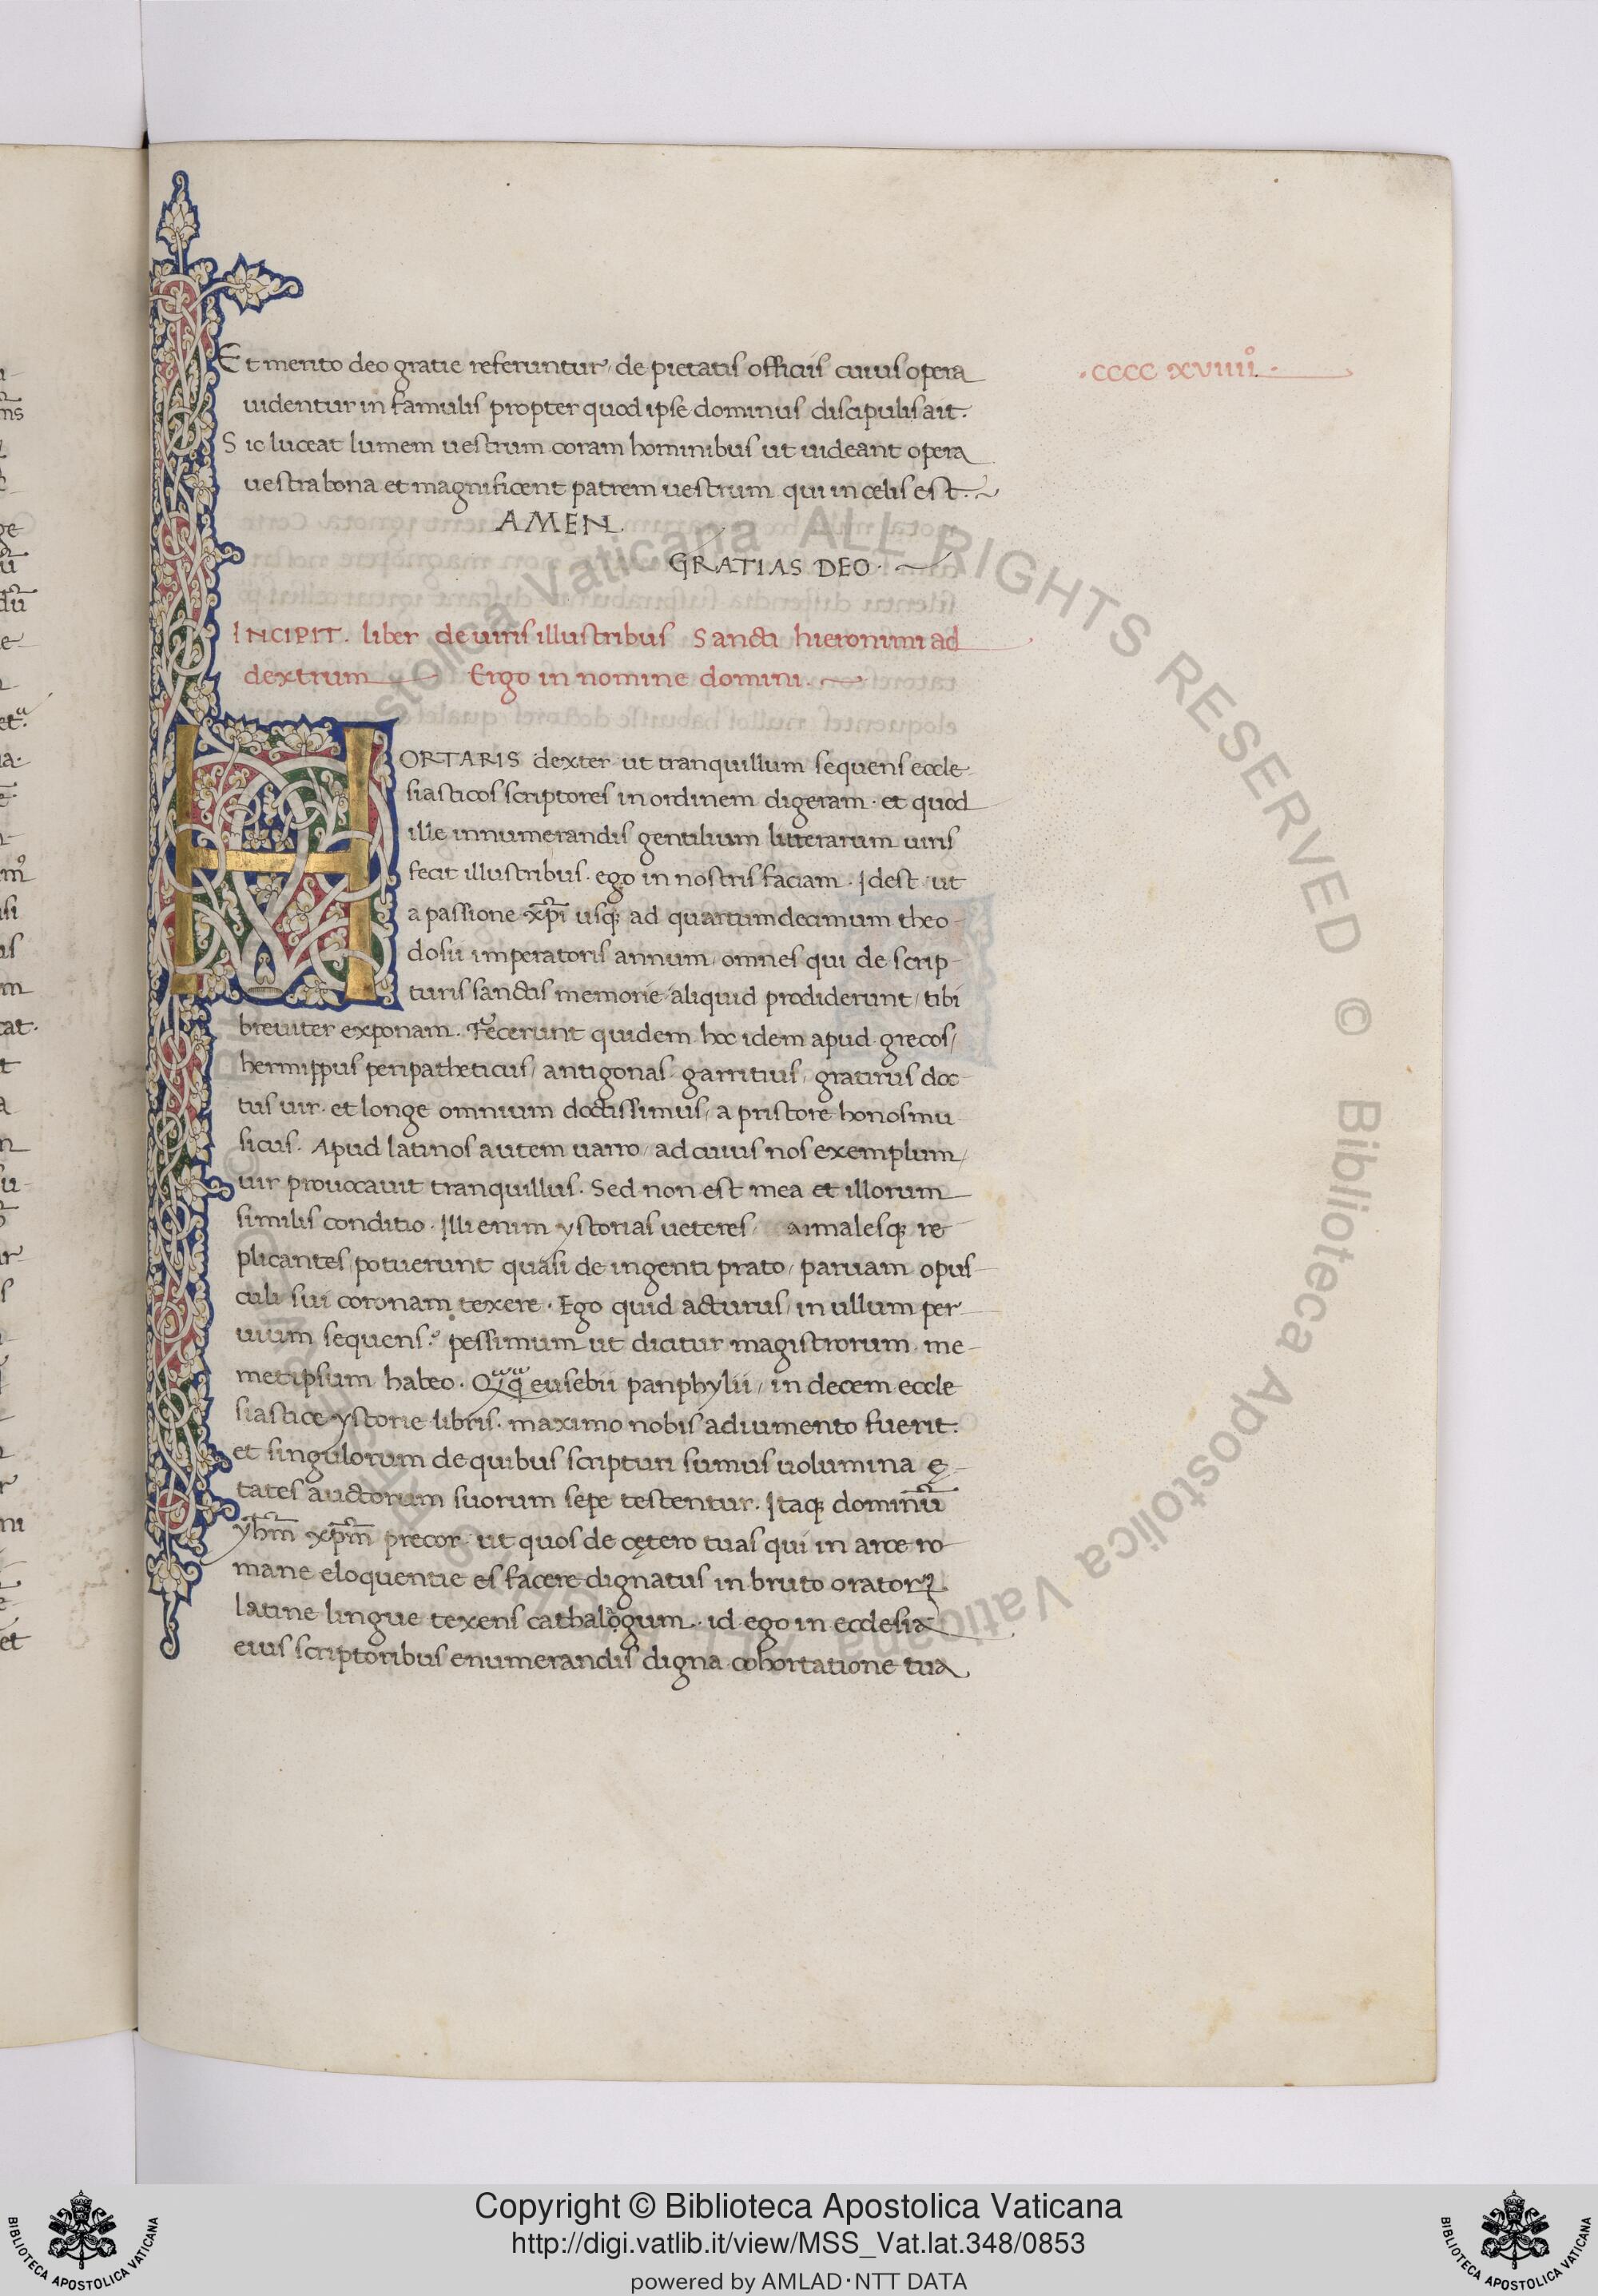 Et merito deo gratie referuntur de pietatis officiis cuius opera
·CCCC XVIIII°·
uidentur in famulis propter quod ipse dominus discipulis ait.
Sic luceat lumem uestrum coram hominibus ut uideant opera
uestra bona et magnificent patrem uestrum qui in celis est.
AMEN.
GRATIAS DEO.
INCIPIT. liber de uiris illustribus Sancti hieronimi ad
dextrum Ergo in nomine domini.
HORTARIS dexter ut tranquillum sequens eccle
siasticos scriptores in ordinem digeram· et quod
ille in numerandis gentilium litterarum uiris
fecit illustribus· ego in nostris faciam. Idest ut
a passione xp̄i usq; ad quartumdecimum theo-
dosii imperatoris annum/ omnes qui de scrip-
turis sanctis memorie aliquid prodiderunt/ tibi
breuiter exponam. Fecerunt quidem hoc idem apud grecos/
hermippus peripatheticus/ antigonas garritius/ gratirus doc-
tus uir· et longe omnium doctissimus/ a pristore honosmu-
sicus. Apud latinos autem uarro/ ad cuius nos exemplum/
uir prouocauit tranquillus. Sed non est mea et illorum
similis conditio. Illi enim ystorias ueteres/ annalesq; re
plicantes/ potuerunt quasi de ingenti prato/ paruam opus
culi sui coronam texere. Ego quid acturus/ in ullum per
uium sequens? pessimum ut dicitur magistrorum me-
metipsum habeo. Qꝙ eusebii panphylii/ in decem eccle
siastice ystorie libris· maximo nobis adiumento fuerit.
et singulorum de quibus scripturi sumus uolumina ę-
tates auctorum suorum sepe testentur. Itaq; dominū
yhm̄ xpm̄ precor ut quos de cętero tuas qui in arce ro
mane eloquentie es facere dignatus in bruto oratorꝝ
latine lingue texens cathalogum· id ego in ecclesia
eius scriptoribus enumerandis digna cohortatione tua
© Biblioteca Apostolica Vaticana ALL RIGHTS RESERVED
Copyright © Biblioteca Apostolica Vaticana
http://digi.vatlib.it/view/MSS_Vat.lat.348/0853
powered by AMLAD·NTT DATA
BIBLIOTECA APOSTOLICA VATICANA
BIBLIOTECA APOSTOLICA VATICANA